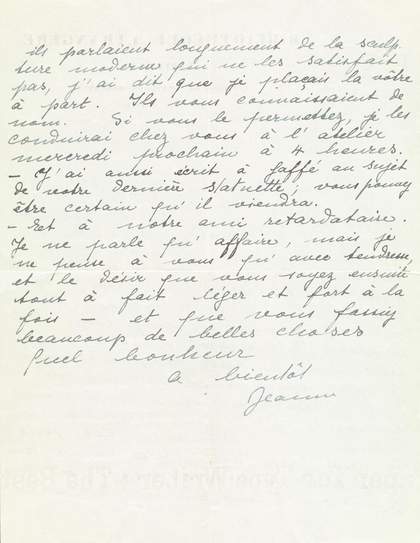 ils parlaient longuement de la sculp
ture moderne qui ne les satisfait
pas, j'ai dit que je plaçais la vôtre
à part. Ils vous connaissaient de
nom. Si vous le permettez, je les
conduirai chez vous à l'atelier
mercredi prochain à 4 heures.
– J'ai aussi écrit à Jaffé au sujet
de votre dernière statuette; vous pouvez
être certain qu'il viendra.
– Et à notre ami retardataire.
Je ne parle qu'affaire, mais je
ne pense à vous qu'avec tendresse,
et le désir que vous soyez ensuite
tout à fait léger et fort à la
fois – et que vous fassiez
beaucoup de belles choses
Quel bonheur
à bientôt
Jeanne